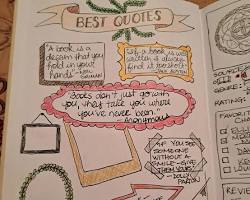 BEST QUOTES
"A book is a
dream that you
hold in your
hands"
GAIMAN
If a book is well
written I always
find it too short.
- JANE AUSTEN
"Books don't just go with
you, they take you where
you've never been."
- Anonymous
IF YOU SEE
SOMEONE
WITHOUT A
SMILE - GIVE
THEM YOURS"
- DOLLY
PARTON
GENRE:
RATING
REVIE